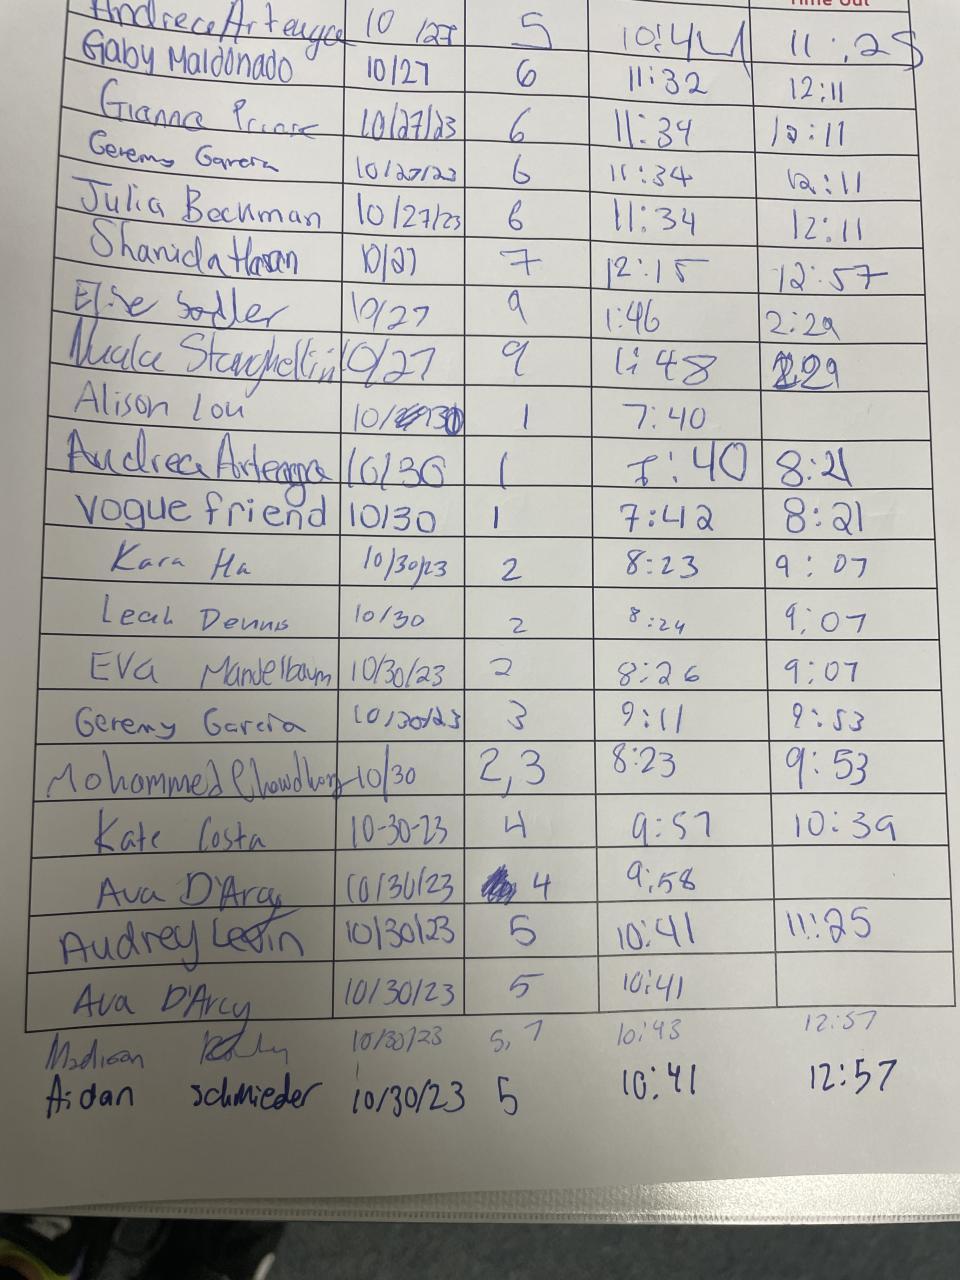 Time Out
Andreea Arteaga 10/27 5 10:41 11:25
Gaby Maldonado 10/27 6 11:32 12:11
Gianna 10/27/23 6 11:34 12:11
Geremy Garcia 10/27/23 6 11:34 12:11
Julia Beckman 10/27/23 6 11:34 12:11
Shanida Hasan 10/27 7 12:15 12:57
Elise Sadler 10/27 9 1:46 2:29
10/27 9 1:48 229
Alison Lou 10/30 1 7:40
Andreea Arteaga 10/30 1 7:40 8:21
vogue friend 10/30 1 7:42 8:21
Kara Ha 10/30/23 2 8:23 9:07
Leah Dennis 10/30 2 8:24 9:07
EVA Mandelbaum 10/30/23 2 8:26 9:07
Geremy Garcia 10/30/23 3 9:11 9:53
Mohammed Chowdhory 10/30 2,3 8:23 9:53
Kate Costa 10-30-23 4 9:57 10:39
Ava D'Arcy 10/30/23 4 9:58
Audrey Levin 10/30/23 5 10:41 11:25
Ava D'Arcy 10/30/23 5 10:41
Madison 10/30/23 5,7 10:43 12:57
Aidan Schmieder 10/30/23 5 10:41 12:57